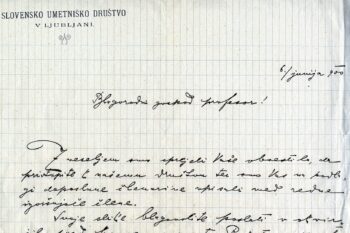 SLOVENSKO UMETNIŠKO DRUŠTVO
V LJUBLJANI.
6/junija 900
Blagorodni gospod profesor!
Z veseljem smo sprejeli Vaš obvestilo, da
pristopite k našemu društvu ter smo Vas na podla-
gi doposlane članarine vpisali med redne
izvršujoče člane.
Svoje slike blagovolite poslati v